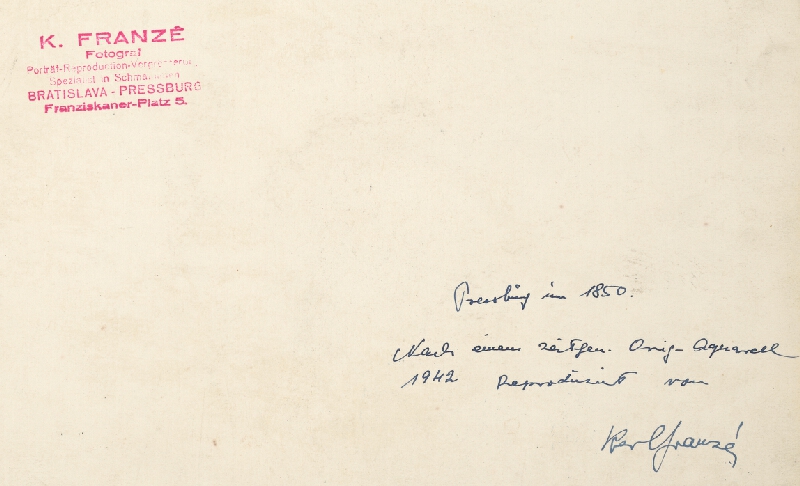 K. FRANZÉ
Fotograf
Porträt-Reproduction-Vergrösserung
Spezialist in Schmalfilmen
BRATISLAVA - PRESSBURG
Franziskaner-Platz 5.
Pressburg im 1850.
Nach einem zeitgen. Orig-Aquarell
1942 Reproduziert von
Karl Franzé